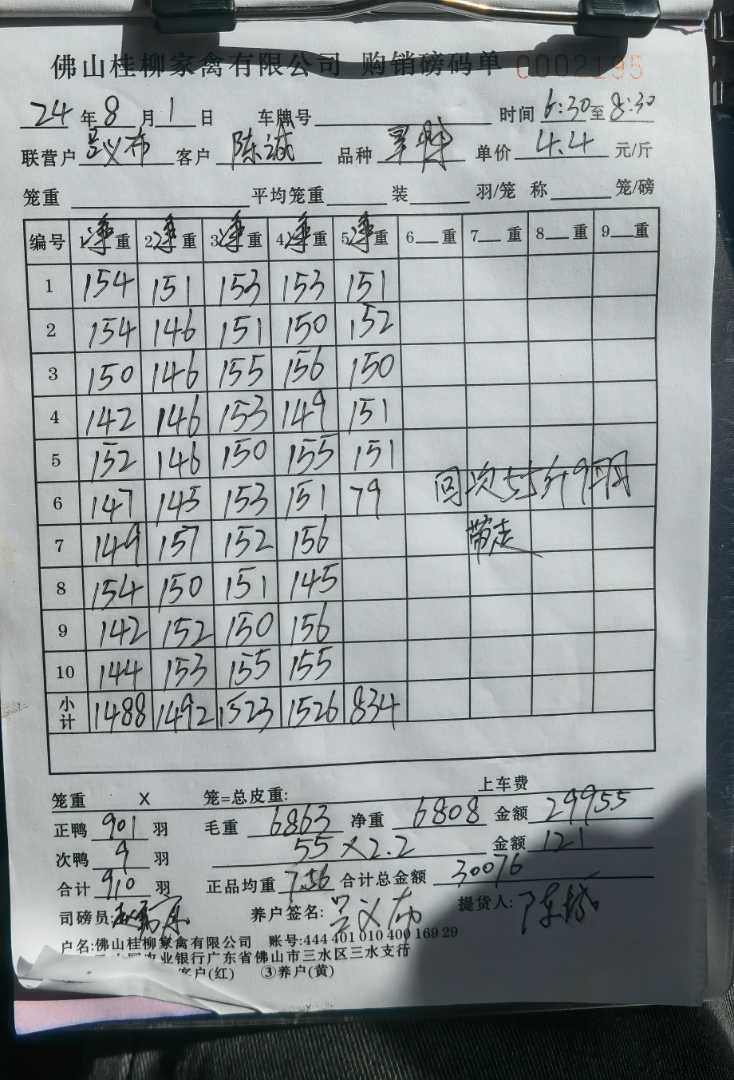 佛山桂柳家禽有限公司 购销磅码单 0002195
24 年 8 月 1 日 车牌号 时间 6:30 至 8:30
联营户 吴义布 客户 陈诚 品种 单价 4.4 元/斤
笼重 平均笼重 装 羽/笼 称 笼/磅
编号 1净重 2净重 3净重 4净重 5净重 6 重 7 重 8 重 9 重
1 154 151 153 153 151
2 154 146 151 150 152
3 150 146 155 156 150
4 142 146 153 149 151
5 152 146 150 155 151
6 147 145 153 151 79 回次55斤9羽
7 149 157 152 156 带走
8 154 150 151 145
9 142 152 150 156
10 144 153 155 155
小计 1488 1492 1523 1526 834
笼重 X 笼=总皮重: 上车费
正鸭 901 羽 毛重 6863 净重 6808 金额 29955
次鸭 9 羽 55×2.2 金额 121
合计 910 羽 正品均重 7.56 合计总金额 30076
司磅员: 养户签名: 吴义布 提货人: 陈诚
户名:佛山桂柳家禽有限公司 账号:444 401 010 400 169 29
农业银行广东省佛山市三水区三水支行
客户(红) ③养户(黄)